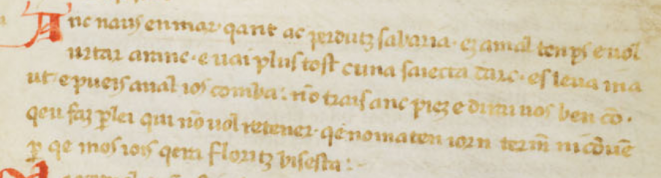 Anc naus en mar qant ac perdutz sa baria ez a mal temps e uol
urtar a ranc e uai plus tost cuna saiecta darc e sleua ma
ut e pueis aual ios tomba no trais anc piez e dirai uos ben co
qeu faz plei qui no uol retener qe nom aten iorn termini couē
p qe mos iois qera floritz bisesta